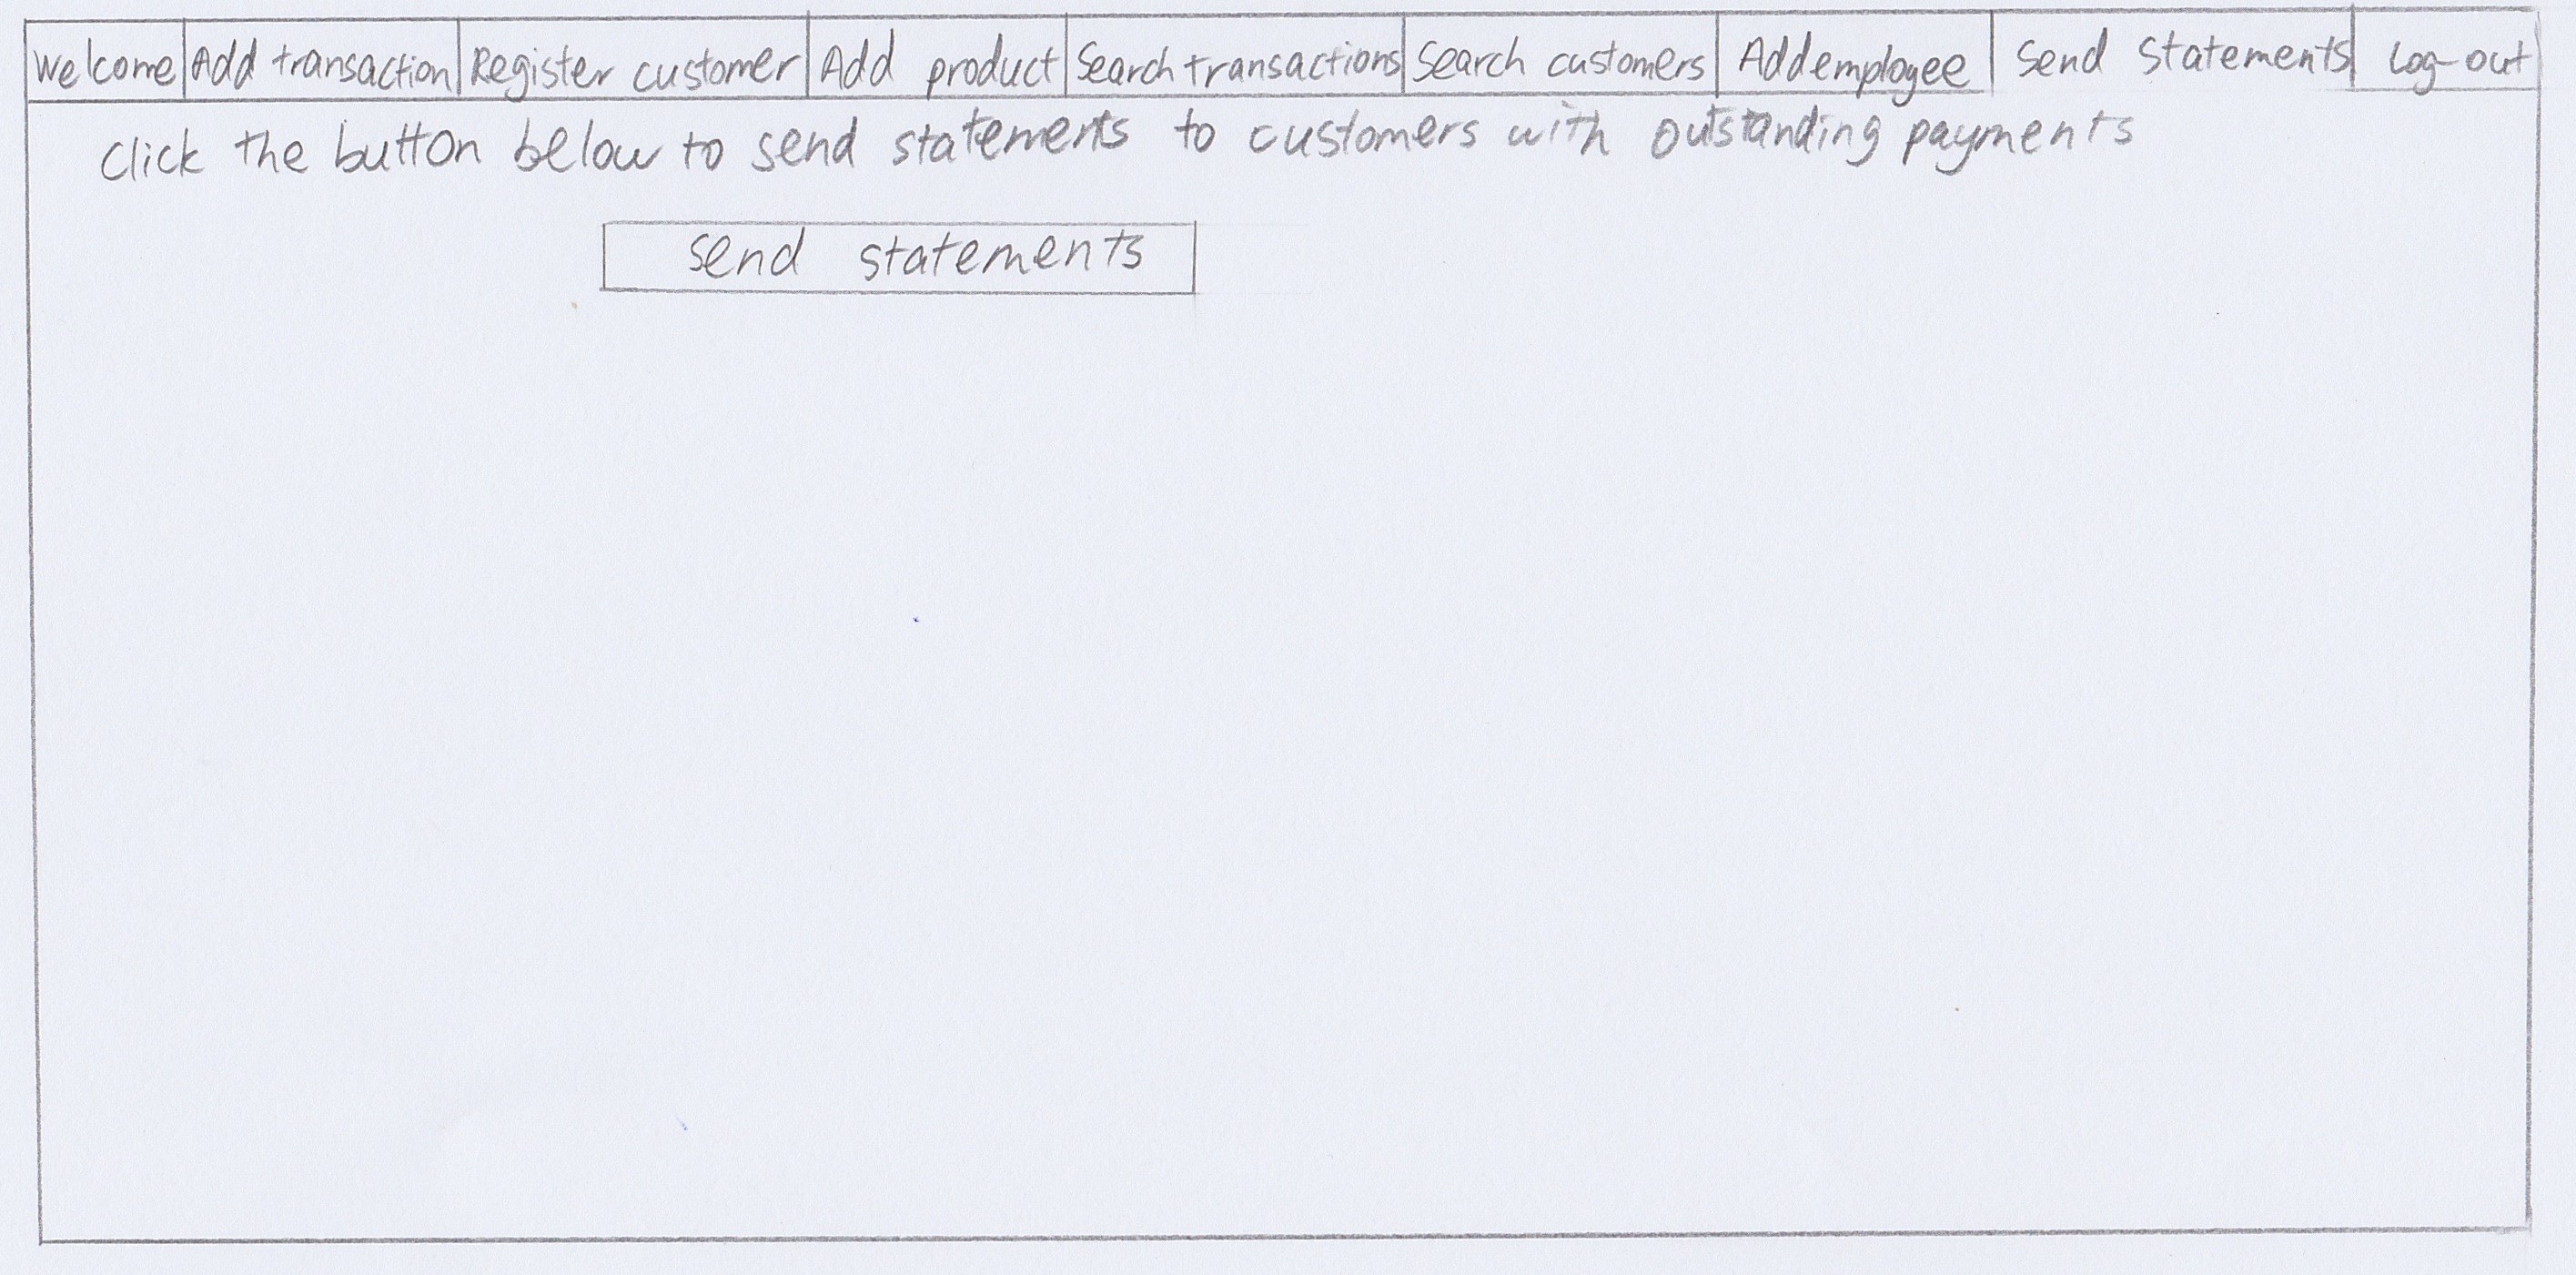 Welcome Add transaction Register customer Add product Search transactions Search customers Add employee Send Statements Log-out
Click the button below to send statements to customers with outstanding payments
Send statements